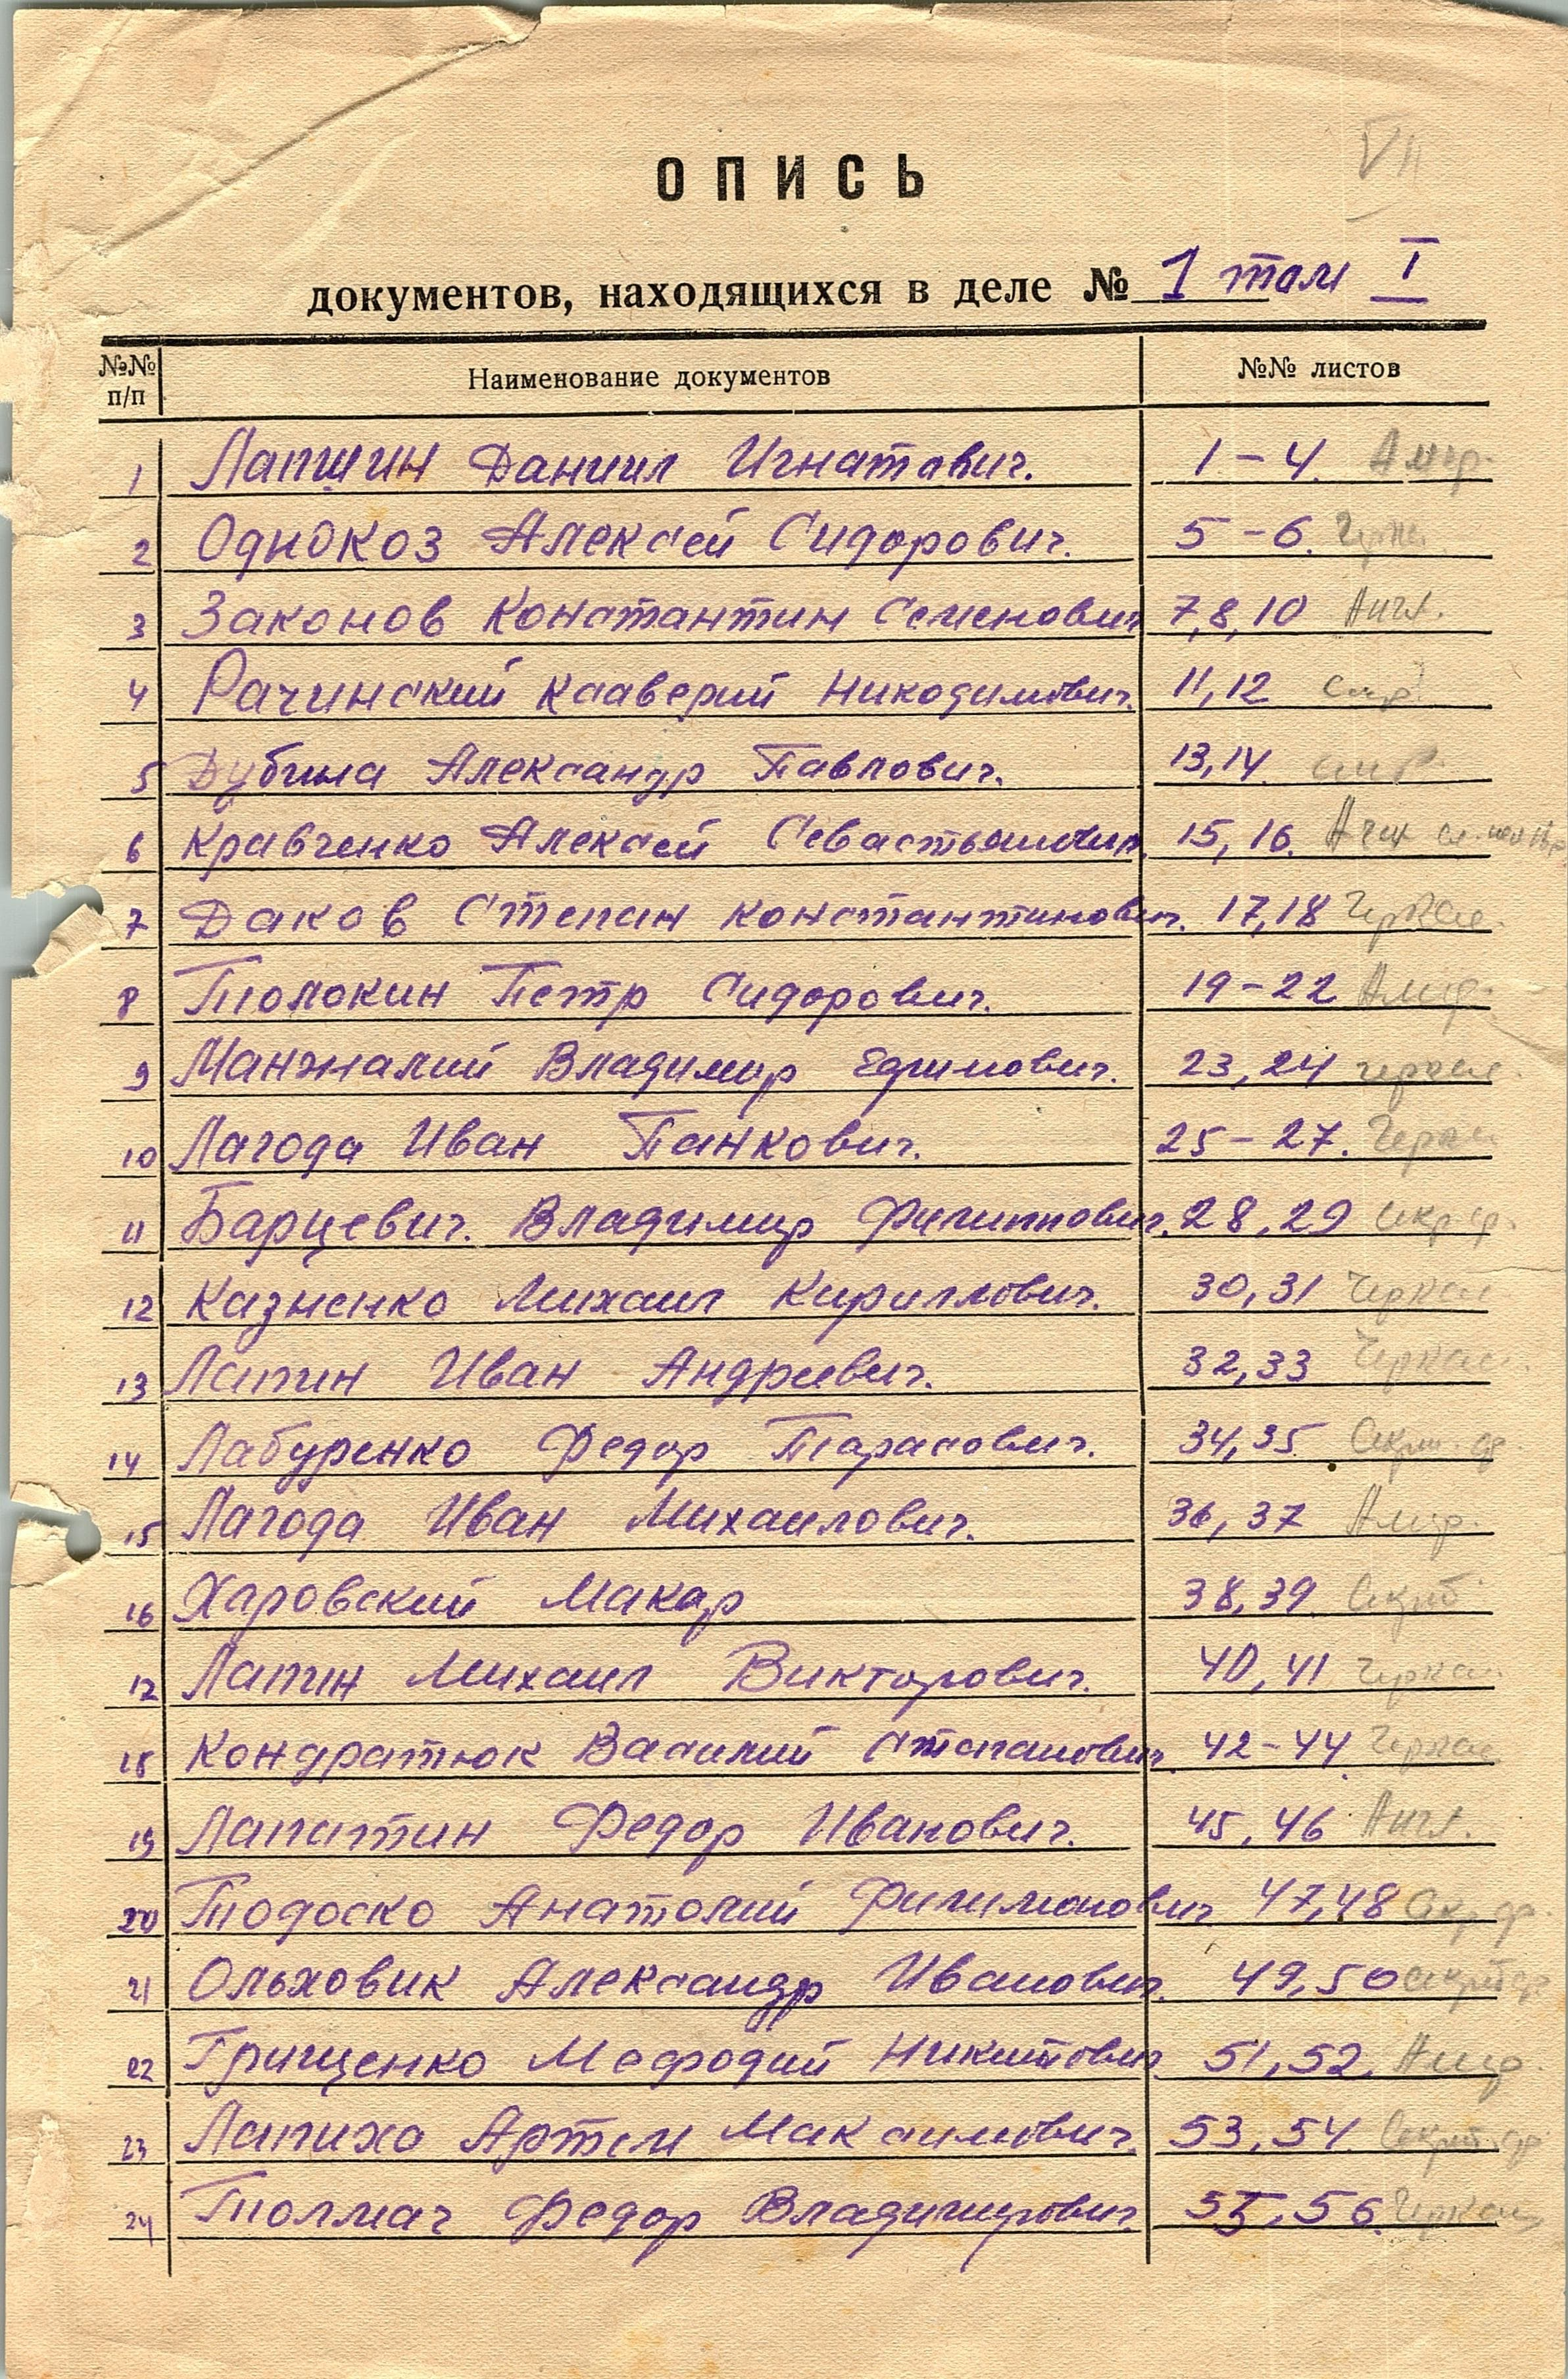 VII
ОПИСЬ
документов, находящихся в деле № 1 том I
№№ п/п Наименование документов №№ листов
1 Лапшин Даниил Игнатович. 1-4.
2 Однокоз Алексей Сидорович. 5-6.
3 Законов Константин Семенович 7,8,10 Англ.
4 Рачинский Ксаверий Никодимович. 11,12
5 Дубина Александр Павлович. 13,14.
6 Кравченко Алексей Севастьянович. 15,16.
7 Даков Степан Константинович. 17,18 Черкас.
8 Толокин Петр Сидорович. 19-22
9 Манжалий Владимир Ефимович. 23,24 черкас.
10 Лагода Иван Панкович. 25-27.
11 Барцевич. Владимир Филиппович. 28,29
12 Казненко Михаил Кириллович. 30,31 Черкас
13 Лапин Иван Андреевич. 32,33 Черкас.
14 Лабуренко Федор Тарасович. 34,35
15 Лагода Иван Михайлович. 36,37
16 Харовский Макар 38,39.
17 Лапин Михаил Викторович. 40,41 Черкас.
18 Кондратюк Василий Степанович. 42-44. Черкас.
19 Лапатин Федор Иванович. 45,46 Англ.
20 Тодоско Анатолий Филимонович 47,48
21 Ольховик Александр Иванович. 49,50
22 Грищенко Мефодий Никитович 51,52.
23 Лапихо Артем Максимович. 53,54.
24 Толмач Федор Владимирович. 55,56. Черкас